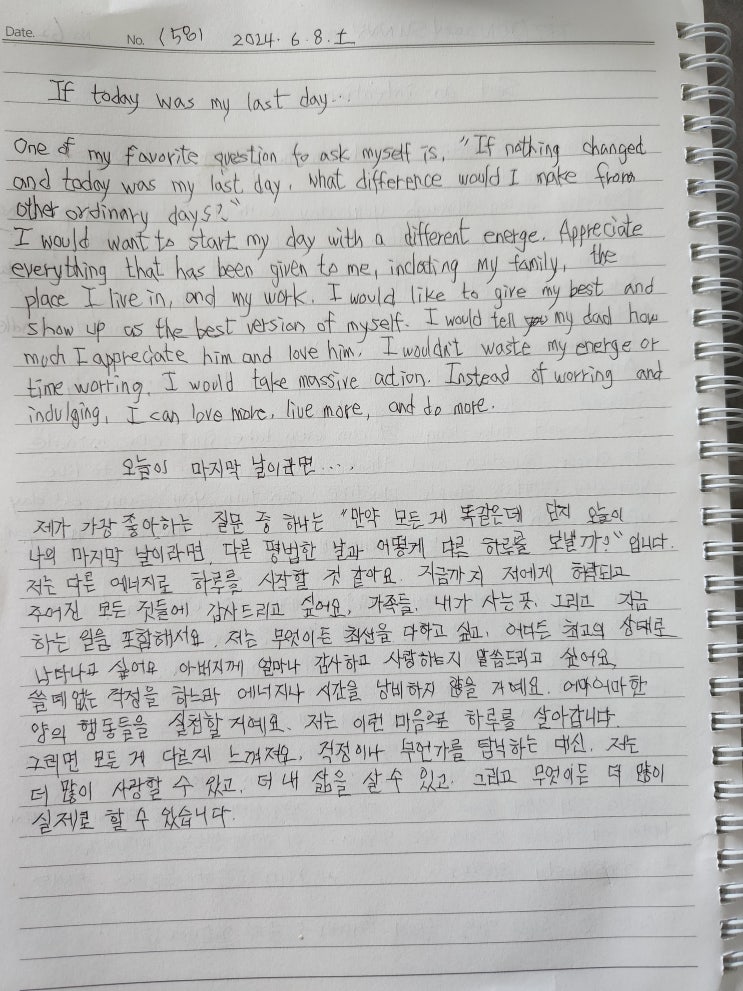 Date.
No. (58) 2024. 6. 8. 土
If today was my last day...
One of my favorite question to ask myself is, "If nothing changed
and today was my last day, what difference would I make from
other ordinary days?"
I would want to start my day with a different energe. Appreciate
everything that has been given to me, incloting my family, the
place I live in, and my work. I would like to give my best and
show up as the best version of myself. I would tell my dad how
much I appreciate him and love him. I wouldn't waste my energe or
time worring. I would take massive action. Instead of worring and
indulging, I can love more, live more, and do more.
오늘이 마지막 날이라면....
제가 가장 좋아하는 질문 중 하나는 "만약 모든게 똑같은데 단지 오늘이
나의 마지막 날이라면, 다른 평범한 날과 어떻게 다른 하루를 보낼까?" 입니다.
저는 다른 에너지로 하루를 시작할 것 같아요. 지금까지 저에게 허락되고
주어진 모든 것들에 감사드리고 싶어요, 가족들, 내가 사는 곳, 그리고 지금
하는 일을 포함해서요. 저는 무엇이든 최선을 다하고 싶고, 어디든 최고의 상태로
나타나고 싶어요. 아버지께 얼마나 감사하고 사랑하는지 말씀드리고 싶어요.
쓸데없는 걱정을 하느라 에너지나 시간을 낭비하지 않을 거예요. 어마어마한
양의 행동들을 실천할거예요. 저는 이런 마음으로 하루를 살아갑니다.
그러면 모든 게 다르게 느껴져요. 걱정이나 무언가를 탐닉하는 대신, 저는
더 많이 사랑할 수 있고, 더 내 삶을 살 수 있고, 그리고 무엇이든 더 많이
실제로 할 수 있습니다.